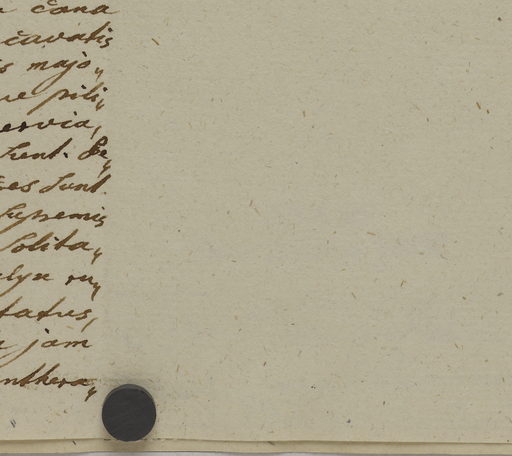 cana
cavatis
s majo„
ve pili„
ervia,
sunt. Se„
es sunt
supremis
solita„
alyx ru„
tatus,
jam
nthera„